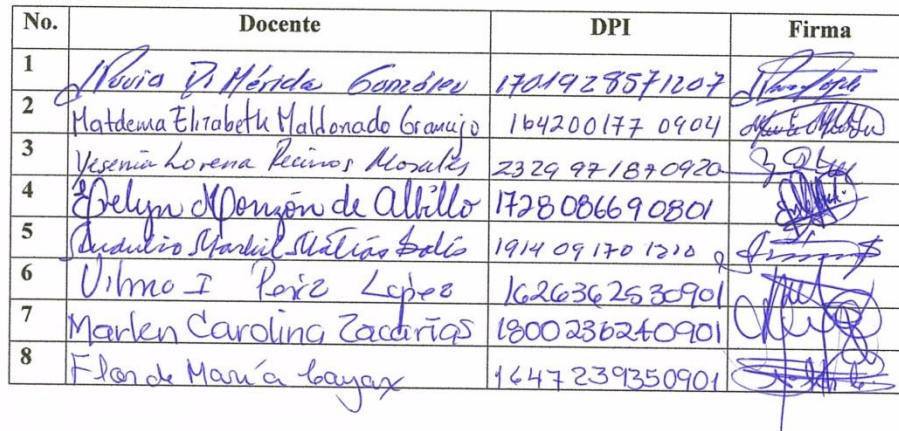 No. Docente DPI Firma
1 D. Mérida González 1701928571207
2 Matdema Elizabeth Maldonado Gramajo 164200177 0904
3 Yesenia Lorena Recinos Morales 2329 97187 0920
4 Evelyn Monzón de Albillo 1728086690801
5 1914 09170 1210
6 Vilma I Pérez López 1626362530901
7 Marlen Carolina Zacarías 1800236240901
8 Flor de María Cayax 1647239350901